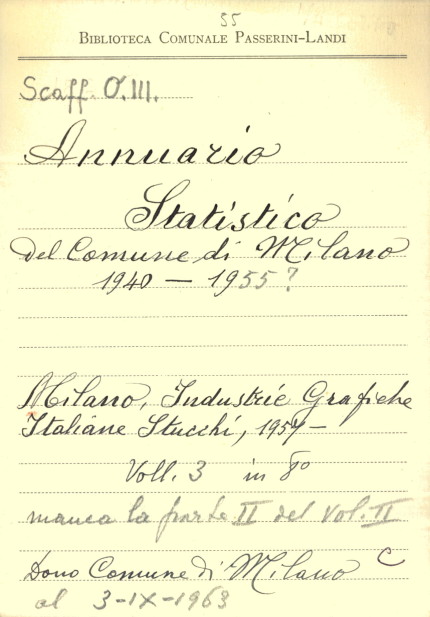 55
BIBLIOTECA COMUNALE PASSERINI-LANDI
Scaff. O.III.
Annuario
Statistico
del Comune di Milano
1940 — 1955?
Milano, Industrie Grafiche
Italiane Stucchi, 1957 —
Voll. 3 in 8º
manca la parte II del Vol. II
Dono Comune di Milano C
al 3-IX-1963